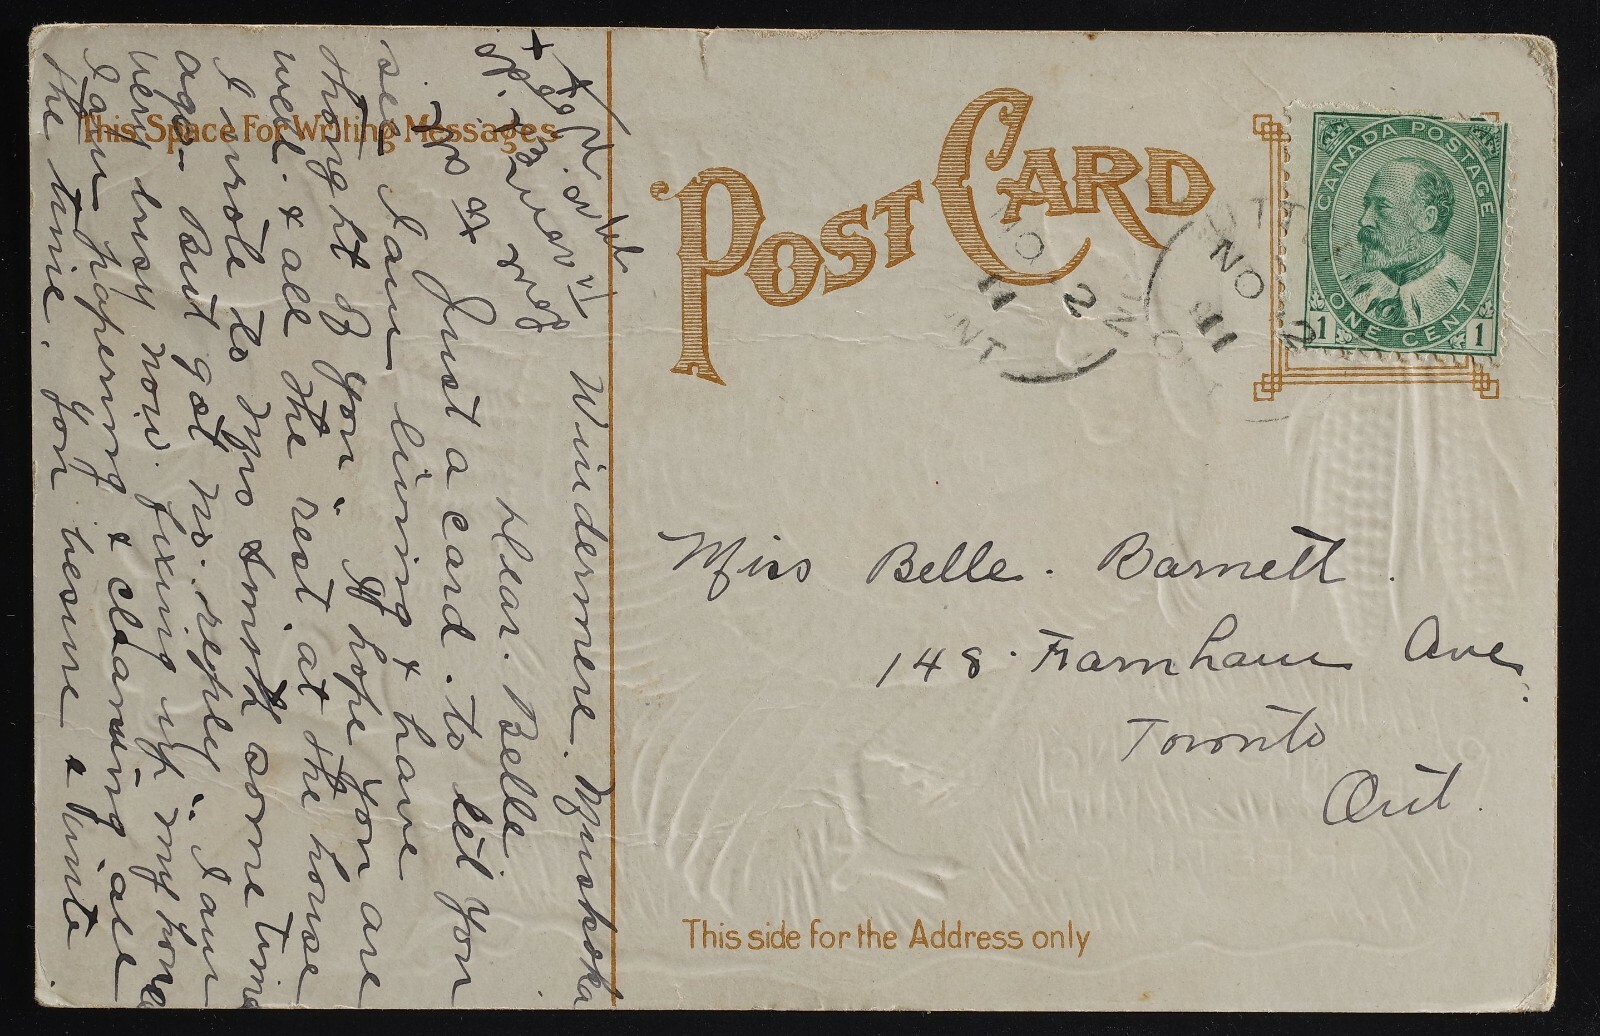 This Space For Writing Messages
POST CARD
CANADA POSTAGE
ONE CENT
1 1
NO 2
11
ONT
NO 2
11
Windermere. Muskoka
Dear. Belle
Just a card. to let you
see I am living & have
thought of you. I hope you are
well. & all the rest at the house
I wrote to Mrs Smith some time
ago. But got no. reply. I am
very busy now. fixing up my home
I am papering & cleaning all
the time. you besure & write
Miss Belle. Barnett.
148. Farnham Ave.
Toronto
Ont.
This side for the Address only